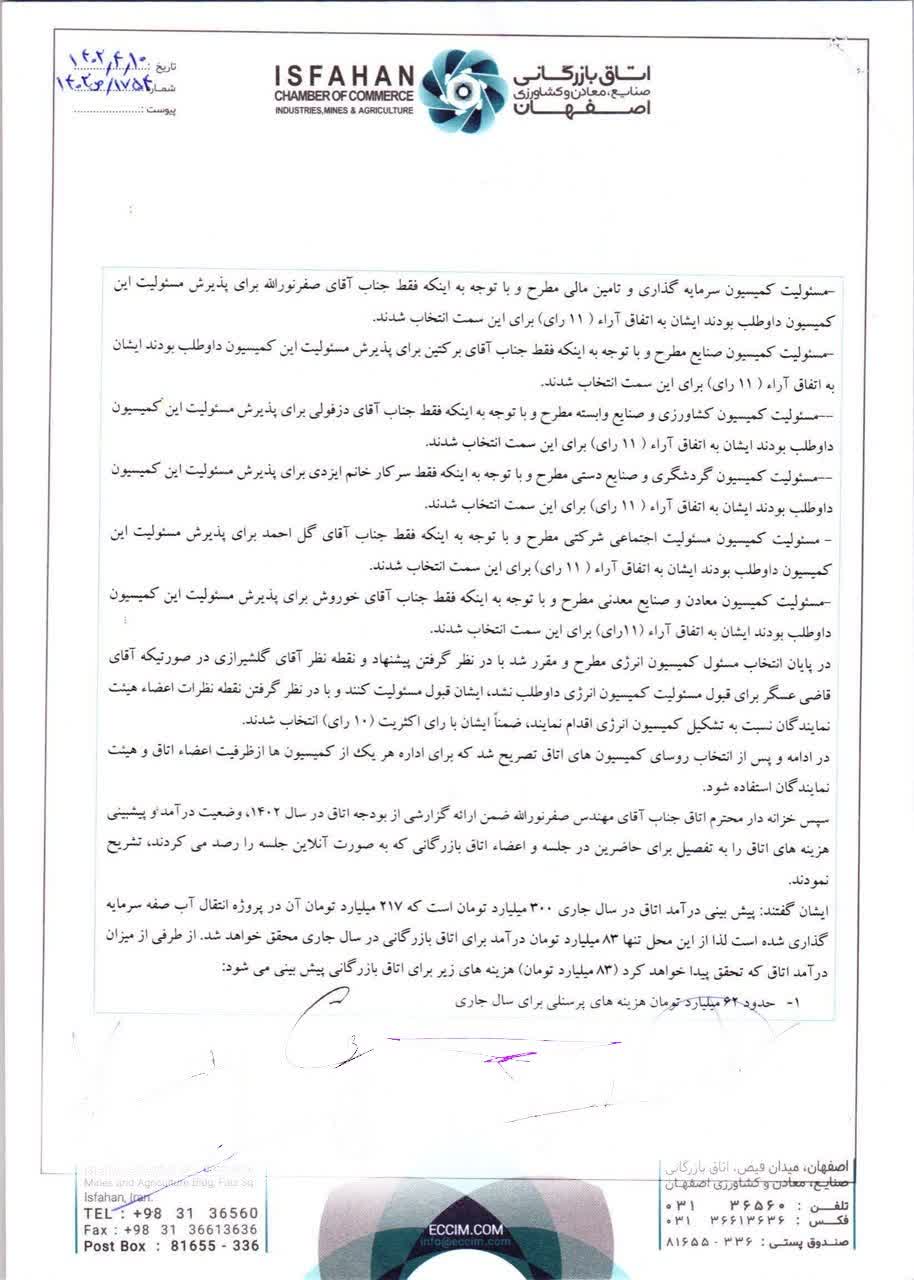 تاریخ : ۱۴۰۲/۴/۱۰
شماره : ۱۴۰۲/ص/۱۷۵۴
پیوست :
ISFAHAN
CHAMBER OF COMMERCE
INDUSTRIES, MINES & AGRICULTURE
اتاق بازرگانی
صنایع، معادن و کشاورزی
اصفهان
-مسئولیت کمیسیون سرمایه گذاری و تامین مالی مطرح و با توجه به اینکه فقط جناب آقای صفرنورالله برای پذیرش مسئولیت این
کمیسیون داوطلب بودند ایشان به اتفاق آراء ( ۱۱ رای) برای این سمت انتخاب شدند.
-مسئولیت کمیسیون صنایع مطرح و با توجه به اینکه فقط جناب آقای برکتین برای پذیرش مسئولیت این کمیسیون داوطلب بودند ایشان
به اتفاق آراء ( ۱۱ رای) برای این سمت انتخاب شدند.
--مسئولیت کمیسیون کشاورزی و صنایع وابسته مطرح و با توجه به اینکه فقط جناب آقای دزفولی برای پذیرش مسئولیت این کمیسیون
داوطلب بودند ایشان به اتفاق آراء ( ۱۱ رای) برای این سمت انتخاب شدند.
--مسئولیت کمیسیون گردشگری و صنایع دستی مطرح و با توجه به اینکه فقط سرکار خانم ایزدی برای پذیرش مسئولیت این کمیسیون
داوطلب بودند ایشان به اتفاق آراء ( ۱۱ رای) برای این سمت انتخاب شدند.
- مسئولیت کمیسیون مسئولیت اجتماعی شرکتی مطرح و با توجه به اینکه فقط جناب آقای گل احمد برای پذیرش مسئولیت این
کمیسیون داوطلب بودند ایشان به اتفاق آراء ( ۱۱ رای) برای این سمت انتخاب شدند.
-مسئولیت کمیسیون معادن و صنایع معدنی مطرح و با توجه به اینکه فقط جناب آقای خوروش برای پذیرش مسئولیت این کمیسیون
داوطلب بودند ایشان به اتفاق آراء (۱۱رای) برای این سمت انتخاب شدند.
در پایان انتخاب مسئول کمیسیون انرژی مطرح و مقرر شد با در نظر گرفتن پیشنهاد و نقطه نظر آقای گلشیرازی در صورتیکه آقای
قاضی عسگر برای قبول مسئولیت کمیسیون انرژی داوطلب نشد، ایشان قبول مسئولیت کنند و با در نظر گرفتن نقطه نظرات اعضاء هیئت
نمایندگان نسبت به تشکیل کمیسیون انرژی اقدام نمایند، ضمناً ایشان با رای اکثریت (۱۰ رای) انتخاب شدند.
در ادامه و پس از انتخاب روسای کمیسیون های اتاق تصریح شد که برای اداره هر یک از کمیسیون ها ازظرفیت اعضاء اتاق و هیئت
نمایندگان استفاده شود.
سپس خزانه دار محترم اتاق جناب آقای مهندس صفرنورالله ضمن ارائه گزارشی از بودجه اتاق در سال ۱۴۰۲، وضعیت درآمد و پیشبینی
هزینه های اتاق را به تفصیل برای حاضرین در جلسه و اعضاء اتاق بازرگانی که به صورت آنلاین جلسه را رصد می کردند، تشریح
نمودند.
ایشان گفتند: پیش بینی درآمد اتاق در سال جاری ۳۰۰ میلیارد تومان است که ۲۱۷ میلیارد تومان آن در پروژه انتقال آب صفه سرمایه
گذاری شده است لذا از این محل تنها ۸۳ میلیارد تومان درآمد برای اتاق بازرگانی در سال جاری محقق خواهد شد. از طرفی از میزان
درآمد اتاق که تحقق پیدا خواهد کرد (۸۳ میلیارد تومان) هزینه های زیر برای اتاق بازرگانی پیش بینی می شود:
۱- حدود ۶۲ میلیارد تومان هزینه های پرسنلی برای سال جاری
Mines and Agriculture Bldg, Faiz Sq
Isfahan, Iran.
TEL : +98 31 36560
Fax : +98 31 36613636
Post Box : 81655 - 336
ECCIM.COM
info@eccim.com
اصفهان، میدان فیض، اتاق بازرگانی
صنایع، معادن و کشاورزی اصفهان
تلفن : ۳۶۵۶۰ ۰۳۱
فکس : ۳۶۶۱۳۶۳۶ ۰۳۱
صندوق پستی : ۳۳۶ - ۸۱۶۵۵